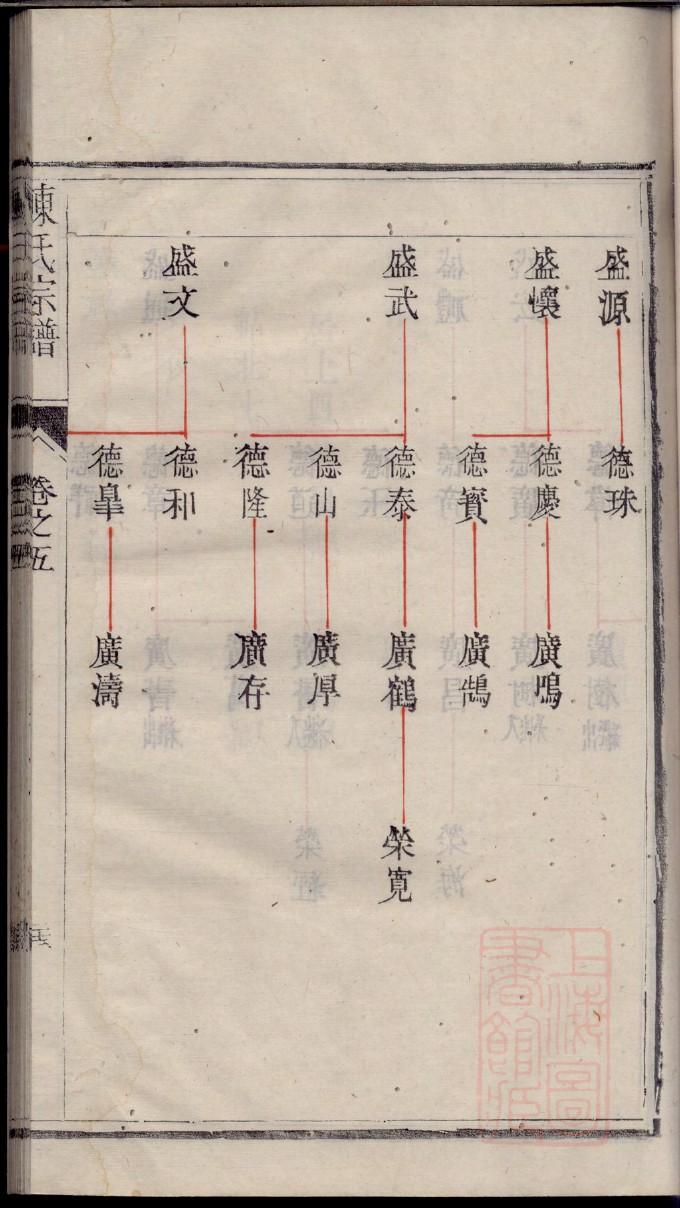 盛源
盛懷
盛武
盛文
德珠
德慶
德寳
德泰
德山
德隆
德和
德臯
廣鳴
廣鵠
廣鶴
廣厚
廣存
廣濤
榮寛
陳氏宗譜
卷之五
上海圖書館藏